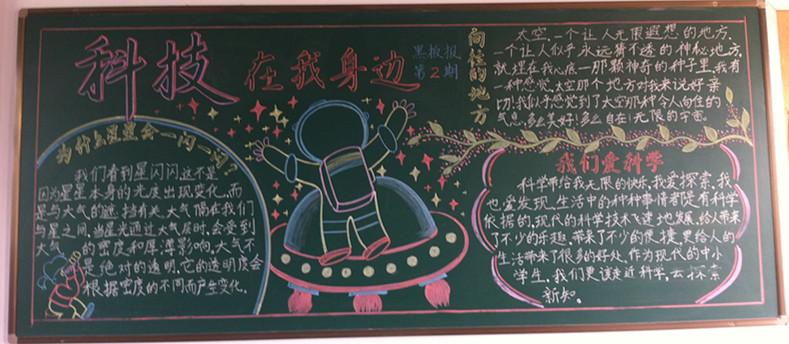 科技在我身边
黑板报
第2期
为什么星星会一闪一闪?
我们看到星闪闪,这不是
因为星星本身的光度出现变化,而
是与大气的遮挡有关.大气隔在我们
与星之间,当星光通过大气层时,会受到
大气的密度和厚薄影响.大气不
是绝对的透明,它的透明度会
根据密度的不同而产生变化.
向往的地方
太空,一个让人无限遐想的地方.
一个让人似乎永远猜不透的神秘地方.
就埋在我心底一那颗神奇的种子里,我有
一种感觉,太空那个地方对我来说好亲
切!我似乎感觉到了太空那种令人向往的
气息.多么美好!多么自在!无限的宇宙.
我们爱科学
科学带给我无限的快乐,我爱探索,我
也爱发现.生活中的种种事情都是有科学
依据的,现代的科学技术飞速地发展,给人带来
了不少的乐趣,带来了不少的便捷,更给人的
生活带来了很多的好处,作为现代的中小
学生,我们更该走近科学,去探索
新知。